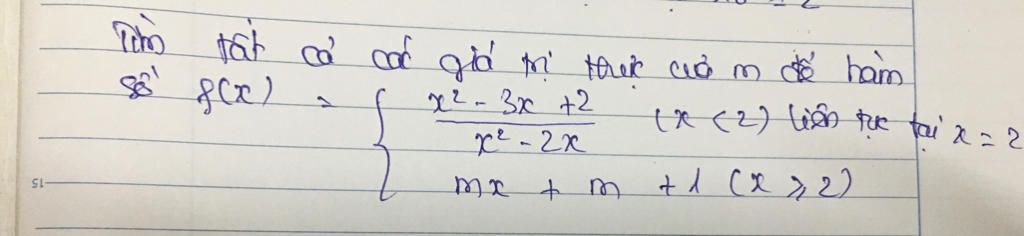 Tìm tất cả các giá trị thực của m để hàm
số f(x) = { x² - 3x + 2 / x² - 2x (x < 2) liên tục tại x = 2
mx + m + 1 (x ≥ 2)
15